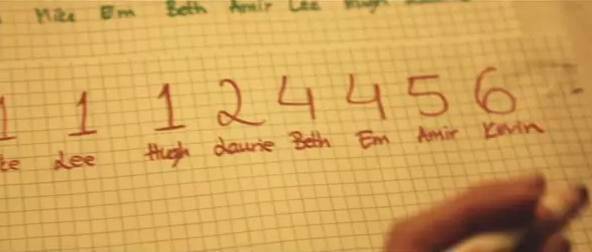 Mike Em Beth Amir Lee Hugh
1 1 1 2 4 4 5 6 -
ke Lee Hugh Laurie Beth Em Amir Kevin